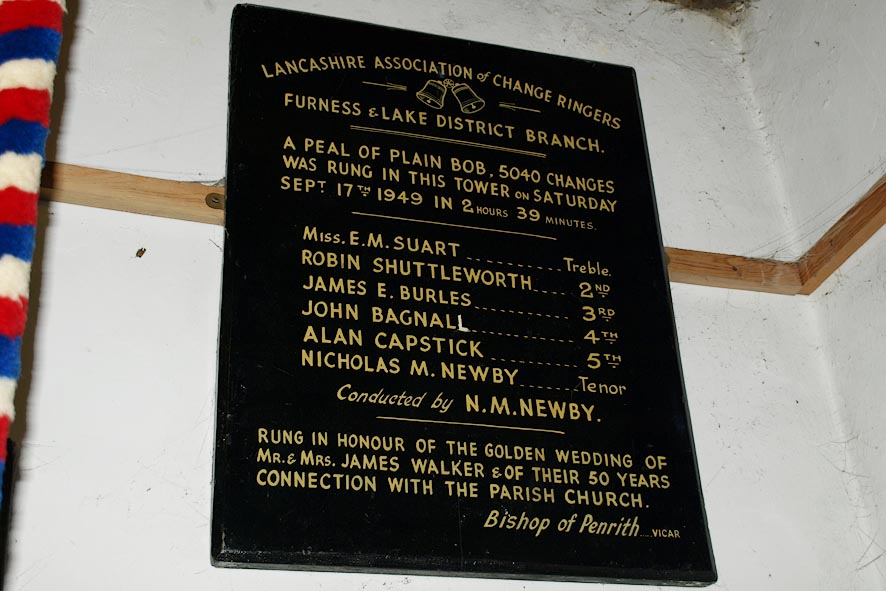 LANCASHIRE ASSOCIATION of CHANGE RINGERS
FURNESS & LAKE DISTRICT BRANCH.
A PEAL OF PLAIN BOB, 5040 CHANGES
WAS RUNG IN THIS TOWER ON SATURDAY
SEPT 17TH 1949 IN 2 HOURS 39 MINUTES.
MISS. E.M. SUART .......... Treble.
ROBIN SHUTTLEWORTH..... 2ND
JAMES E. BURLES .......... 3RD
JOHN BAGNALL .......... 4TH
ALAN CAPSTICK .......... 5TH
NICHOLAS M. NEWBY....... Tenor
Conducted by N.M. NEWBY.
RUNG IN HONOUR OF THE GOLDEN WEDDING OF
MR. & MRS. JAMES WALKER & OF THEIR 50 YEARS
CONNECTION WITH THE PARISH CHURCH.
Bishop of Penrith....VICAR